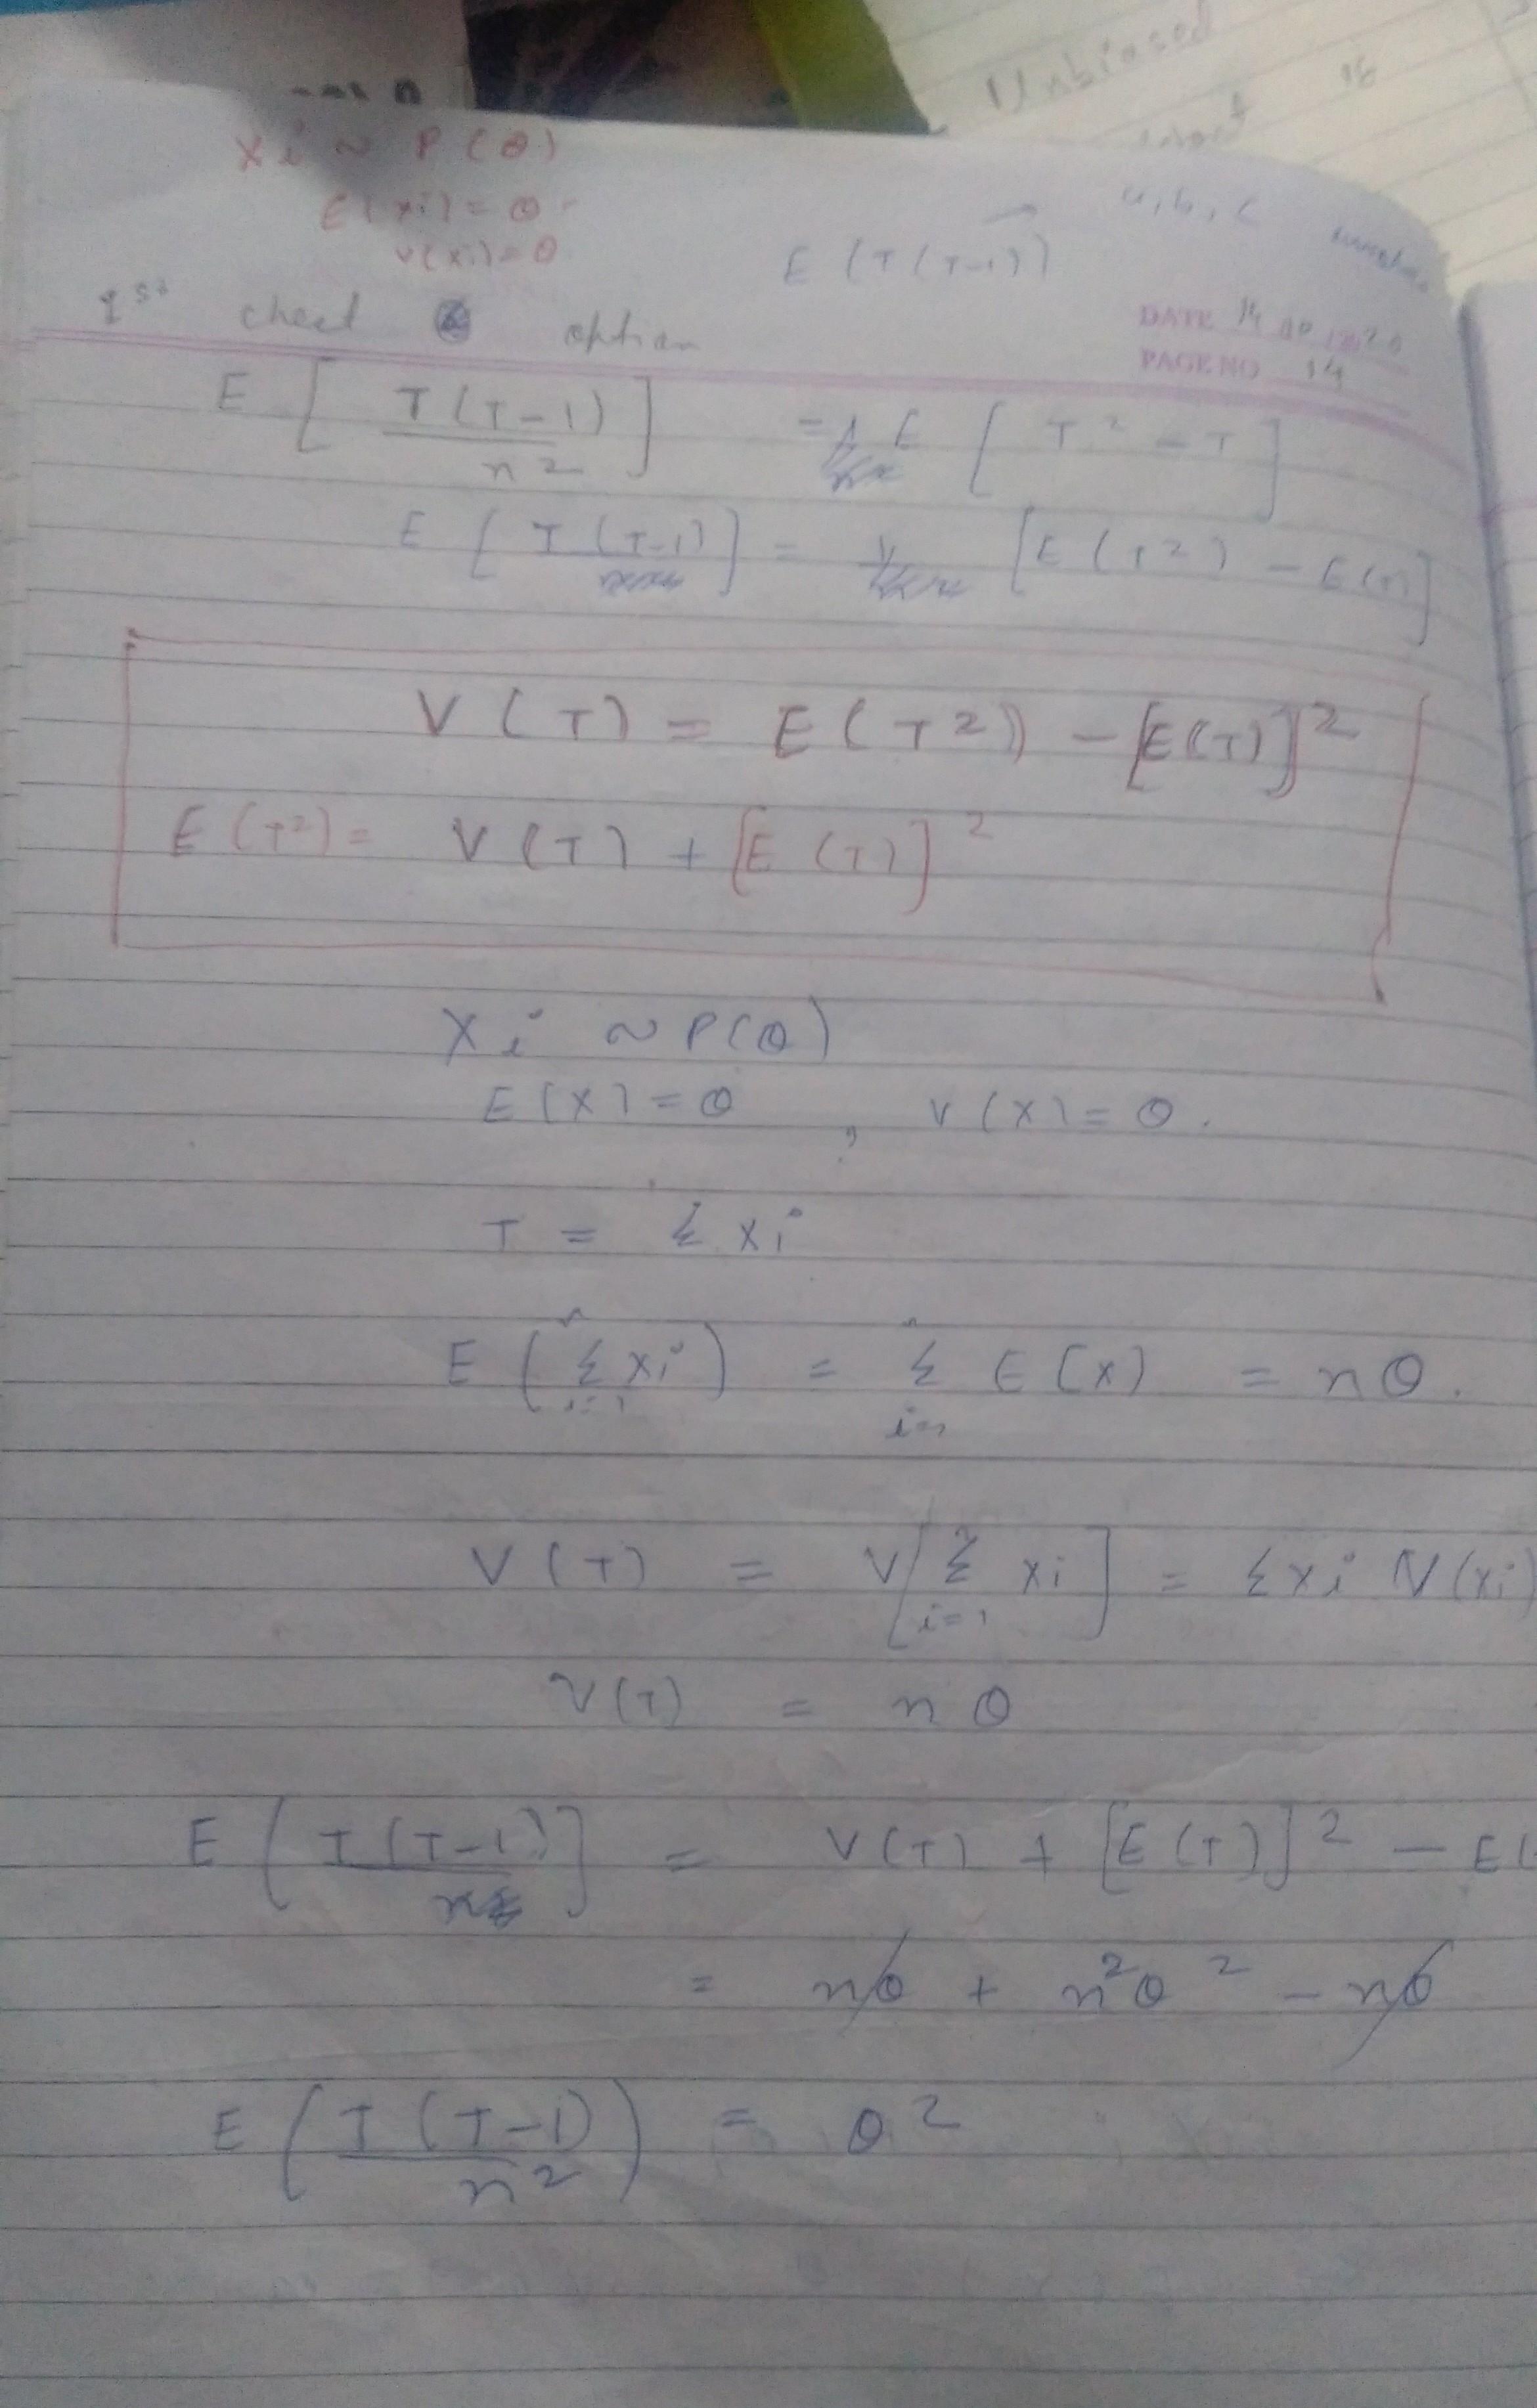 Unbiased
Xi ~ P(θ)
E(xi) = θ
v(xi) = θ
a, b, c
E (T(T-1))
1st check option
DATE 14
PAGE NO 14
E [ T(T-1) / n2 ] = E [ T2 - T ]
E [ T(T-1) ] = [E(T2) - E(T)]
V(T) = E(T2) - [E(T)]2
E(T2) = V(T) + [E(T)]2
Xi ~ P(θ)
E(X) = θ , V(X) = θ.
T = Σ xi
E ( n Σ i=1 xi ) = n Σ i= E(x) = nθ.
V(T) = V[ Σ i=1 xi ] = Σxi V(xi)
V(T) = nθ
E [ T(T-1) ] = V(T) + [E(T)]2 - E(
= nθ + n2θ2 - nθ
E ( T(T-1) / n2 ) = θ2